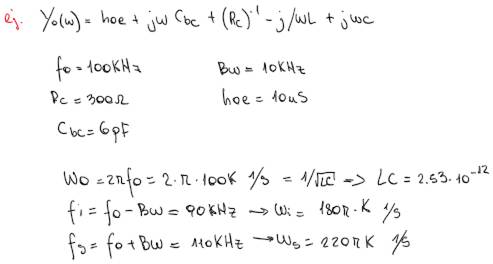 ej. Yo(w) = hoe + jw Cbc + (Rc)^-1 - j/wL + jwc
fo = 100KHz Bw = 10KHz
Rc = 300Ω hoe = 10uS
Cbc = 6pF
Wo = 2πfo = 2·π·100K 1/s = 1/√LC => LC = 2.53·10^-12
fi = fo - Bw = 90KHz → Wi = 180π·K 1/s
fs = fo + Bw = 110KHz → Ws = 220πK 1/s